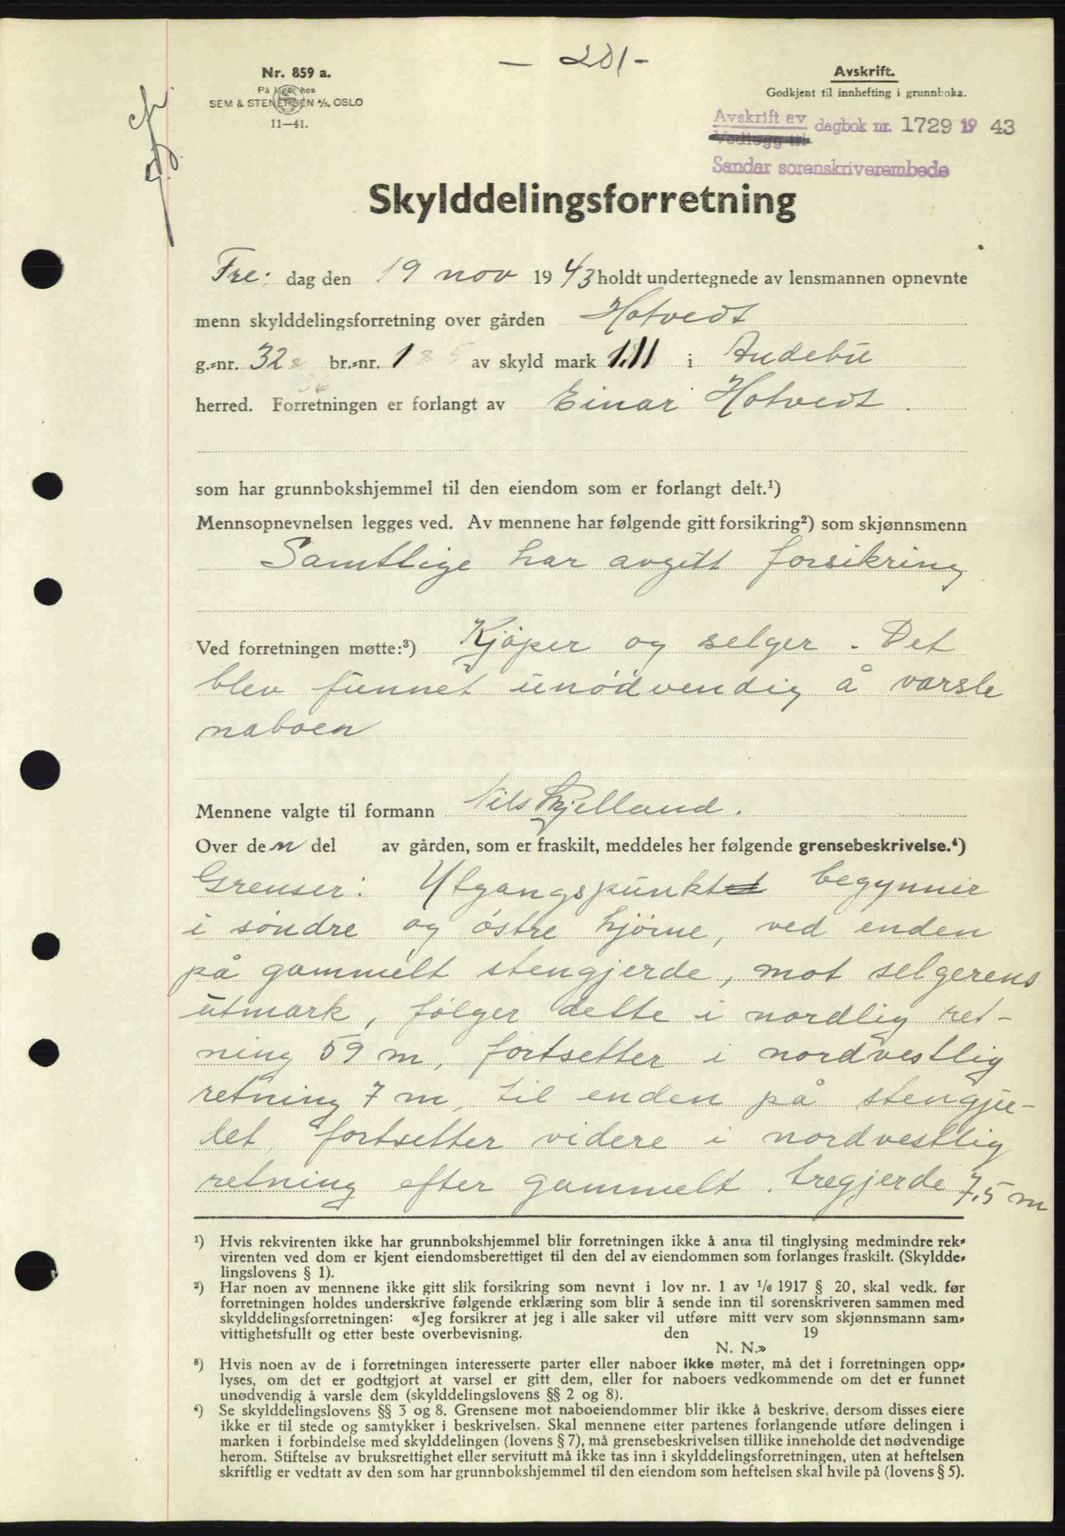 — 201 —
Nr. 859 a.
På lager hos
SEM & STENERSEN A/S, OSLO
11—41.
Avskrift.
Godkjent til innhefting i grunnboka.
Avskrift av
Vedlegg til
dagbok nr. 1729 19 43
Sandar sorenskriverembede
Skylddelingsforretning
Fre: dag den 19 nov 1943 holdt undertegnede av lensmannen opnevnte
menn skylddelingsforretning over gården Hotvedt
g.-nr. 32 br.-nr. 1 av skyld mark 1.11 i Andebu
herred. Forretningen er forlangt av Einar Hotvedt.
som har grunnbokshjemmel til den eiendom som er forlangt delt.¹)
Mennsopnevnelsen legges ved. Av mennene har følgende gitt forsikring²) som skjønnsmenn
Samtlige har avgitt forsikring
Ved forretningen møtte:³) Kjøper og selger. Det
blev funnet unødvendig å varsle
naboen
Mennene valgte til formann Nils Kjelland.
Over den del av gården, som er fraskilt, meddeles her følgende grensebeskrivelse.⁴)
Grenser: Utgangspunktet begynner
i søndre og østre hjørne, ved enden
på gammelt stengjerde, mot selgerens
utmark, følger dette i nordlig ret-
ning 59 m, fortsetter i nordvestlig
retning 7 m, til enden på stengjer-
det, fortsetter videre i nordvestlig
retning efter gammelt tregjerde 7,5 m
¹) Hvis rekvirenten ikke har grunnbokshjemmel blir forretningen ikke å anta til tinglysing medmindre rek-
virenten ved dom er kjent eiendomsberettiget til den del av eiendommen som forlanges fraskilt. (Skyldde-
lingslovens § 1).
²) Har noen av mennene ikke gitt slik forsikring som nevnt i lov nr. 1 av 1/6 1917 § 20, skal vedk. før
forretningen holdes underskrive følgende erklæring som blir å sende inn til sorenskriveren sammen med
skylddelingsforretningen: «Jeg forsikrer at jeg i alle saker vil utføre mitt verv som skjønnsmann sam-
vittighetsfullt og etter beste overbevisning. den 19
N. N.»
³) Hvis noen av de i forretningen interesserte parter eller naboer ikke møter, må det i forretningen opp-
lyses, om det er godtgjort at varsel er gitt dem, eller for naboers vedkommende om det er funnet
unødvendig å varsle dem (skylddelingslovens §§ 2 og 8).
⁴) Se skylddelingslovens §§ 3 og 8. Grensene mot naboeiendommer blir ikke å beskrive, dersom disses eiere
ikke er til stede og samtykker i beskrivelsen. Skal mennene etter partenes forlangende utføre delingen i
marken i forbindelse med skylddelingen (lovens § 7), må grensebeskrivelsen tillike inneholde det nødvendige
herom. Stiftelse av bruksrettighet eller servitutt må ikke tas inn i skylddelingsforretningen, uten at heftelsen
skriftlig er vedtatt av den som har grunnbokshjemmel til den eiendom som heftelsen skal hvile på (lovens § 5).